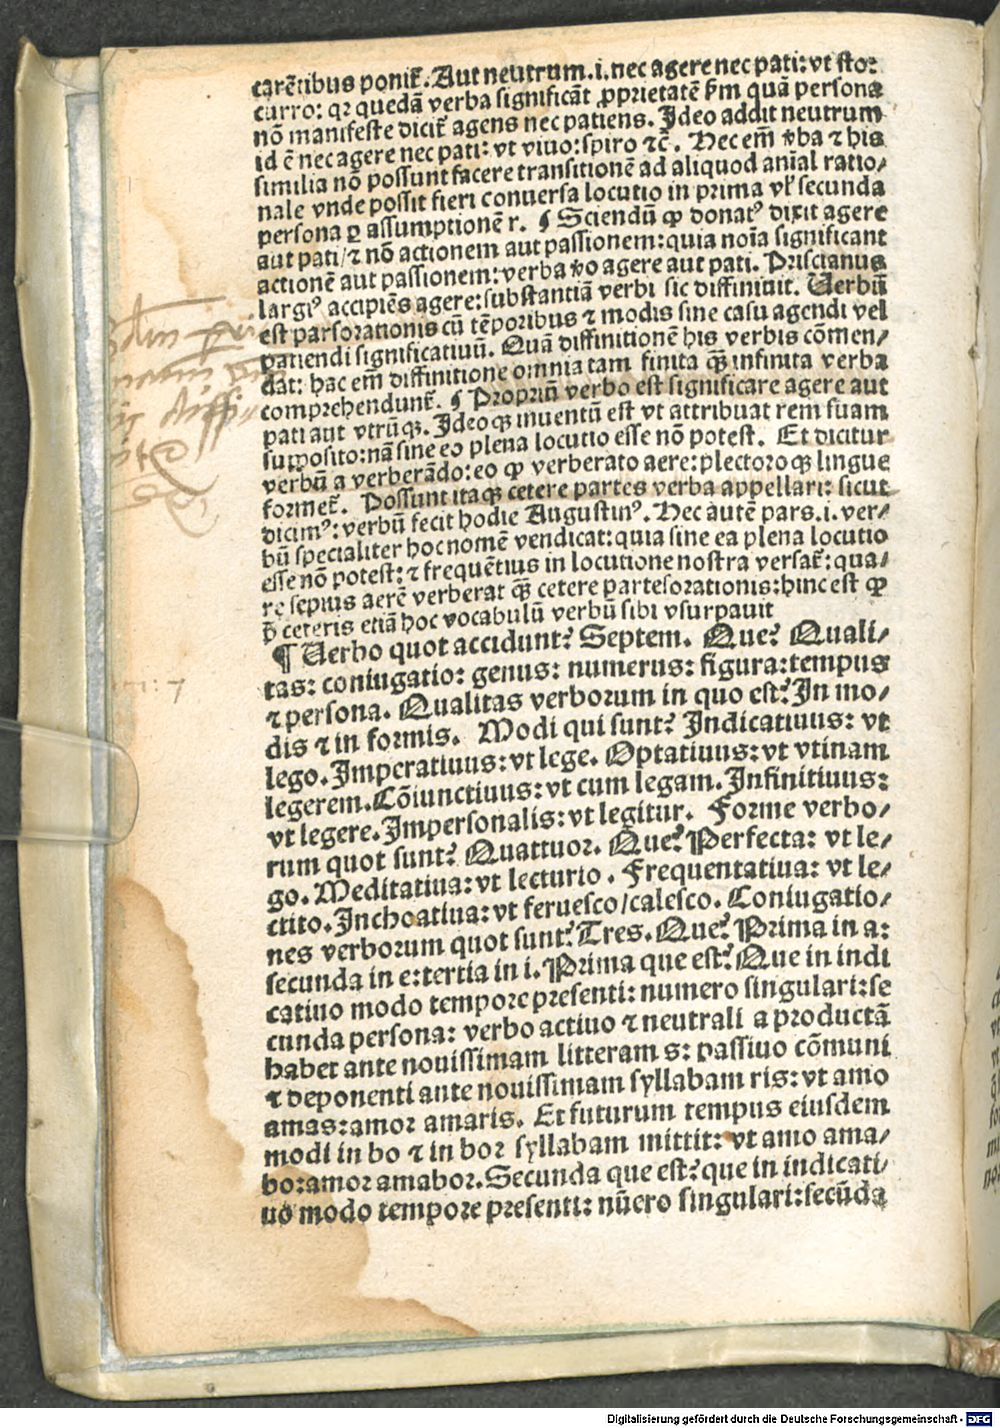 carētibus ponit̄. Aut neutrum .i. nec agere nec pati: vt sto:
curro: qr quedā verba significāt ꝓprietatē ẜm quā persona
nō manifeste dicit̄ agens nec patiens. Ideo addit neutrum
id ē nec agere nec pati: vt viuo: spiro ⁊c̄. Hec em̄ v̄ba ⁊ his
similia nō possunt facere transitionē ad aliquod anīal ratio/
nale vnde possit fieri conuersa locutio in prima vl̓ secunda
persona ꝑ assumptionē r. ¶ Sciendū ꝙ donatꝰ dixit agere
aut pati/ ⁊ nō actionem aut passionem: quia noīa significant
actionē aut passionem: verba v̓o agere aut pati. Priscianus
largiꝰ accipiēs agere: substantiā verbi sic diffiniuit. Uerbū
est pars orationis cū tēporibus ⁊ modis sine casu agendi vel
patiendi significatiuū. Quā diffinitionē his verbis cōmen/
dat: hac em̄ diffinitione omnia tam finita qꝫ̄ infinita verba
comprehendunt̄. ¶ Propriū verbo est significare agere aut
pati aut vtrūqꝫ. Ideoqꝫ inuentū est vt attribuat rem suam
supposito: nā sine eo plena locutio esse nō potest. Et dicitur
verbū a verberādo: eo ꝙ verberato aere: plectoroqꝫ lingue
formet̄. Possunt itaqꝫ cetere partes verba appellari: sicut
dicimꝰ: verbū fecit hodie Augustinꝰ. Hec autē pars .i. ver/
bū specialiter hoc nomē vendicat: quia sine ea plena locutio
esse nō potest: ⁊ frequētius in locutione nostra versat̄: qua/
re sepius aerē verberat qꝫ̄ cetere partes orationis: hinc est ꝙ
p̄ ceteris etiā hoc vocabulū verbū sibi vsurpauit
¶ Uerbo quot accidunt? Septem. Que? Quali/
tas: coniugatio: genus: numerus: figura: tempus
⁊ persona. Qualitas verborum in quo est? In mo/
dis ⁊ in formis. Modi qui sunt? Indicatiuus: vt
lego. Imperatiuus: vt lege. Optatiuus: vt vtinam
legerem. Cōiunctiuus: vt cum legam. Infinitiuus:
vt legere. Impersonalis: vt legitur. Forme verbo/
rum quot sunt? Quattuor. Que? Perfecta: vt le/
go. Meditatiua: vt lecturio. Frequentatiua: vt le/
ctito. Inchoatiua: vt feruesco/calesco. Coniugatio/
nes verborum quot sunt? Tres. Que? Prima in a:
secunda in e: tertia in i. Prima que est? Que in indi
catiuo modo tempore presenti: numero singulari: se
cunda persona: verbo actiuo ⁊ neutrali a productā
habet ante nouissimam litteram s: passiuo cōmuni
⁊ deponenti ante nouissimam syllabam ris: vt amo
amas: amor amaris. Et futurum tempus eiusdem
modi in bo ⁊ in bor syllabam mittit: vt amo ama/
bo: amor amabor. Secunda que est? que in indicati/
uo modo tempore presenti: nūero singulari: secūda
Digitalisierung gefördert durch die Deutsche Forschungsgemeinschaft - DFG